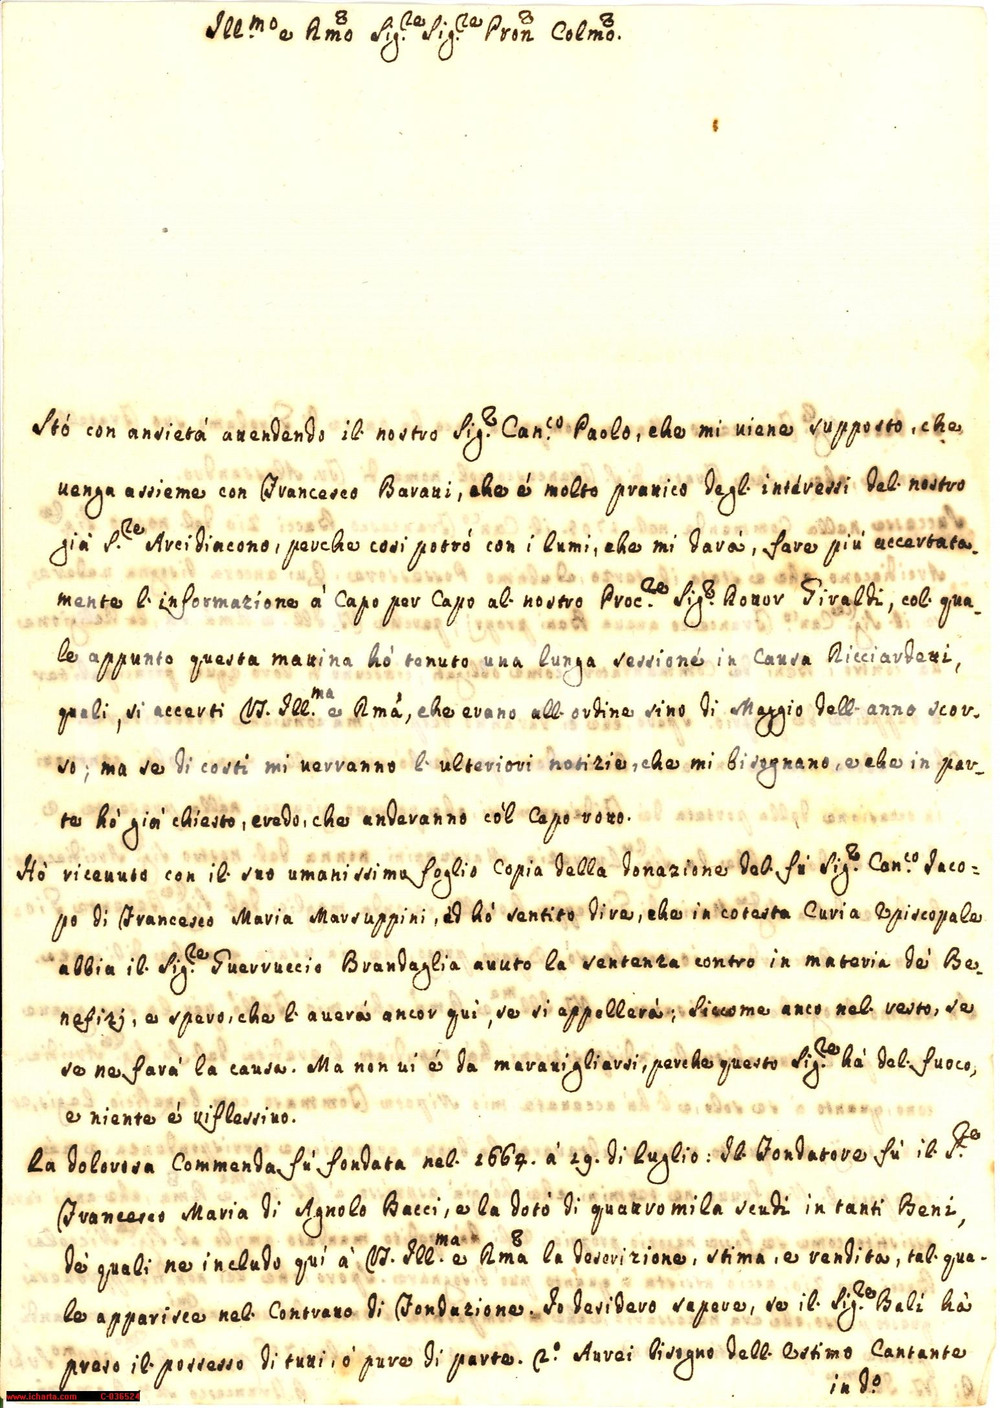 Ill.mo e Rmo Sig.re Sig.re Pron Colmo.
Stó con ansietá attendendo il nostro Sig.r Can.co Paolo, che mi viene supposto, che
venga assieme con Francesco Baratti, che é molto prattico degl' interessi del nostro
giá S.re Arcidiacono, perche cosi potró con i lumi, che mi dará, fare piú accertata-
mente l' informazione á Capo per Capo al nostro Proc.re Sig.r Dottor Giraldi, col qua-
le appunto questa mattina hó tenuto una lunga sessione in Causa Ricciardetti,
quali, si accerti V.S. Ill.ma e Rma, che erano all' ordine sino di Maggio dell' anno scor-
so; ma se di costi mi verranno l' ulteriori notizie, che mi bisognano, e che in par-
te hó giá chiesto, credo, che anderanno có'l Capo rotto.
Hó ricevuto con il suo umanissimo foglio Copia della donazione del fú Sig.r Can.co Jaco=
po di Francesco Maria Marsuppini, ed hó sentito dire, che in cotesta Curia Episcopale
abbia il Sig.re Guerruccio Brandaglia avuto la sentenza contro in materia dé Be-
nefizj, e spero, che l' averá ancor qui, se si appellerá; siccome anco nel resto, se
se ne fará la causa. Ma non vi é da maravigliarsi, perche questo Sig.re há del fuoco,
e niente é riflessivo.
La dolorosa Commenda fú fondata nel 1667. á 29. di luglio: Il Fondatore fú il S.re
Francesco Maria di Agnolo Bacci, e la dotó di quattromila scudi in tanti Beni,
dé quali ne includo quí á V.S. Ill.ma e Rma la descrizione, stima, e vendita, tal qua-
le apparisce nel Contratto di Fondazione. Io desidero sapere, se il Sig.re Balí há
preso il possesso di tutti, ó pure di parte. 2.o Avrei bisogno dell' estimo Cantante
in d.o
www.icharta.com C-036524